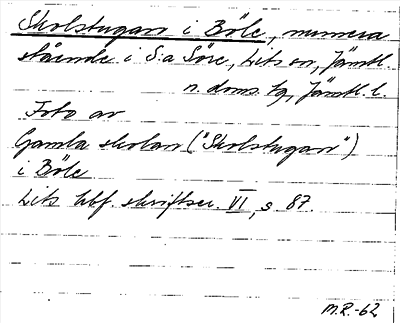 Skolstugan i Böle, numera
stående i S:a Söre, Lits sn, Jämtl.
n. doms. tg, Jämtl. l.
Foto av
Gamla skolan ("Skolstugan")
i Böle
Lits hbf. skriftser. VI, s. 87.
M.R.-62